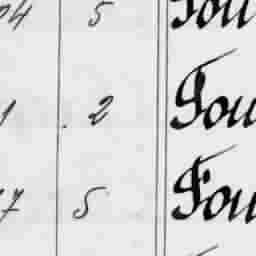 04 5 Tou
1 . 2 Tou
7 5 Fou